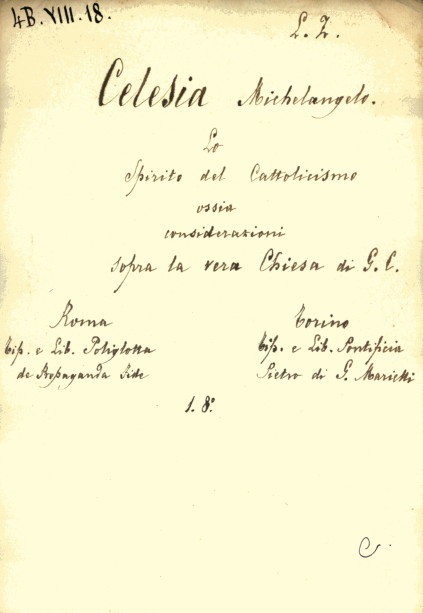 4B.VIII.18.
L. Z.
Celesia Michelangelo.
Lo
Spirito del Cattolicismo
ossia
considerazioni
sopra la vera Chiesa di G. C.
Roma
Tip. e Lib. Poliglotta
de Propaganda Fide
Torino
Tip. e Lib. Pontificia
Pietro di G. Marietti
1. 8º
C.